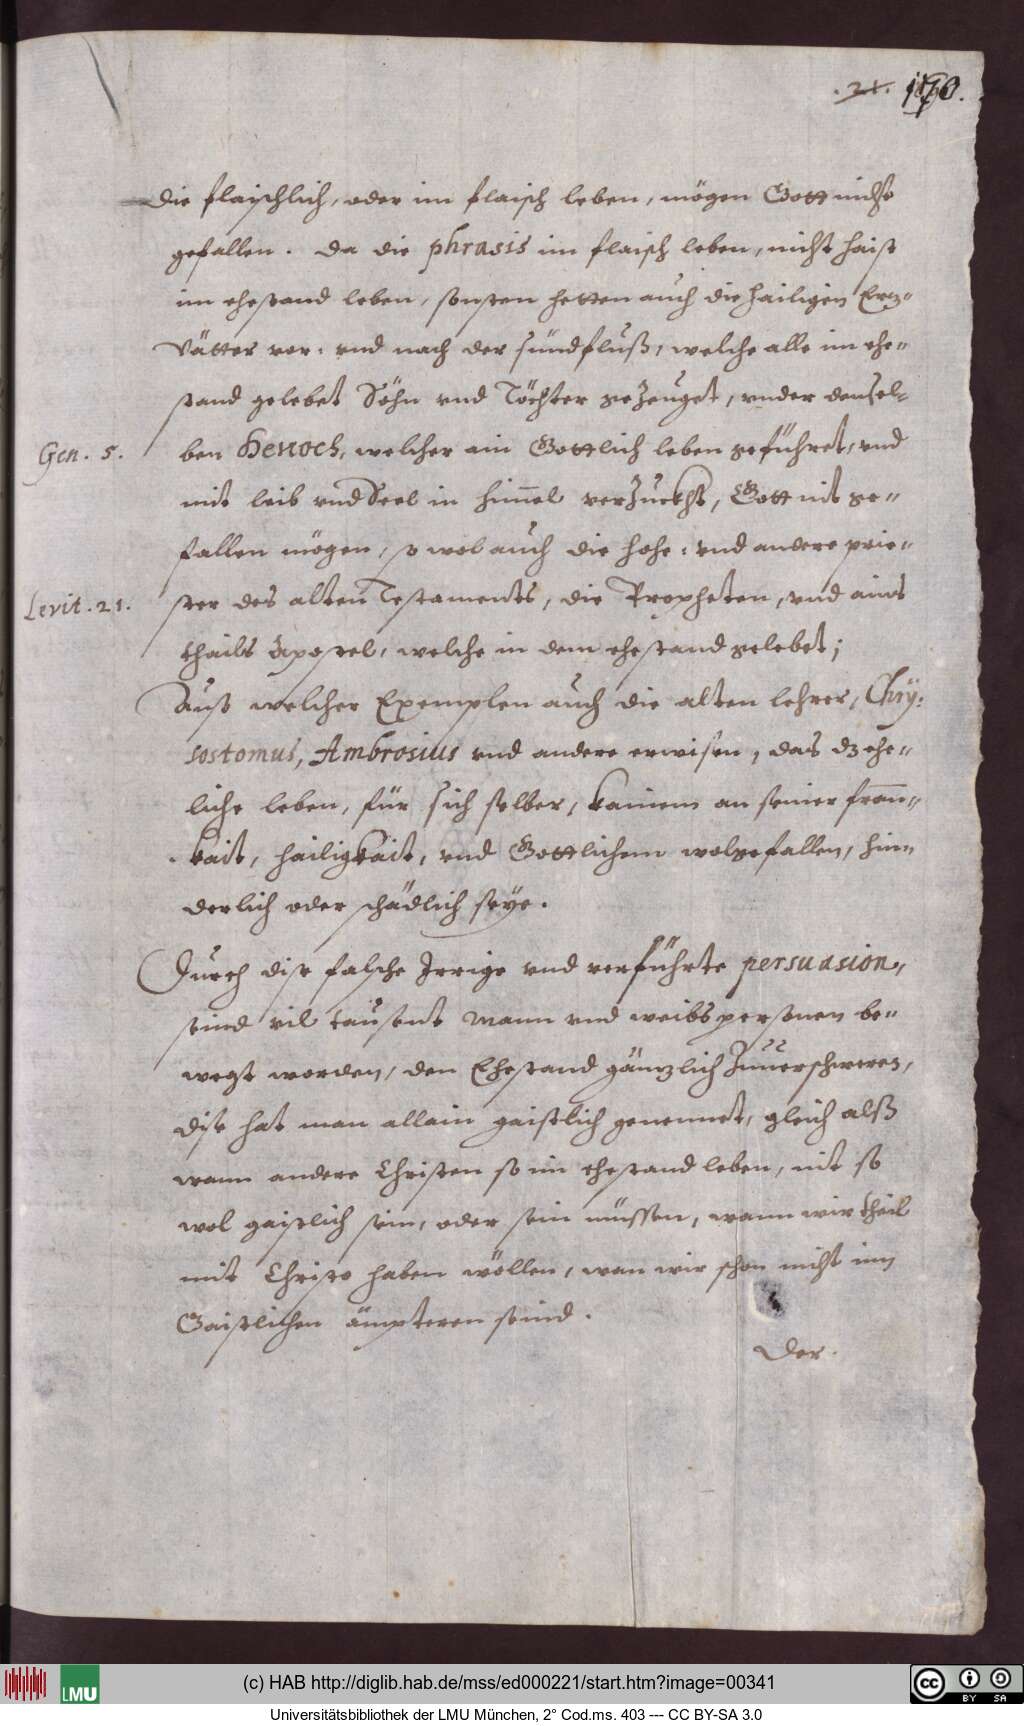 .21. 170.
die flaischlich, oder im flaisch leben, mögen Gott nicht
gefallen. da die phrasis im flaisch leben, nicht haist
im ehestand leben, sonsten hetten auch die hailigen Erz-
Vätter vor: vnd nach der sündfluß, welche alle im ehe-
stand gelebet Söhn vnd Töchter gezeuget, vnder densel-
Gen. 5. ben Henoch, welcher ain Gottlich leben geführet, vnd
mit leib vnd Seel in himel verzuckht, Gott nit ge-
fallen mögen, so wol auch die hohe: vnd andere prie-
Levit. 21. ster des alten Testaments, die Propheten, vnd ains
thails Apostel, welche in dem ehestand gelebet;
Auß welcher Exemplen auch die alten lehrer, Chrÿ:
sostomus, Ambrosius vnd andere erwisen, das dz ehe-
liche leben, für sich selber, kainem an seiner from-
kait, hailigkait, vnd Gottlichem wolgefallen, hin-
derlich oder schädlich seye.
Durch dise falsche Irrige vnd verführte persuasion,
seind vil tausent Mann vnd weibs personen be-
wegt worden, den Ehestand gänzlich zuuerschweren,
dise hat man allain gaistlich genennet, gleich alß
wann andere Christen so im ehestand leben, nit so
wol gaistlich sein, oder sein müssen, wann wir theil
mit Christo haben wöllen, wan wir schon nicht inn
Gaistlichen ämpteren seind.
Der
(c) HAB http://diglib.hab.de/mss/ed000221/start.htm?image=00341
Universitätsbibliothek der LMU München, 2° Cod.ms. 403 --- CC BY-SA 3.0
LMU
CC BY SA